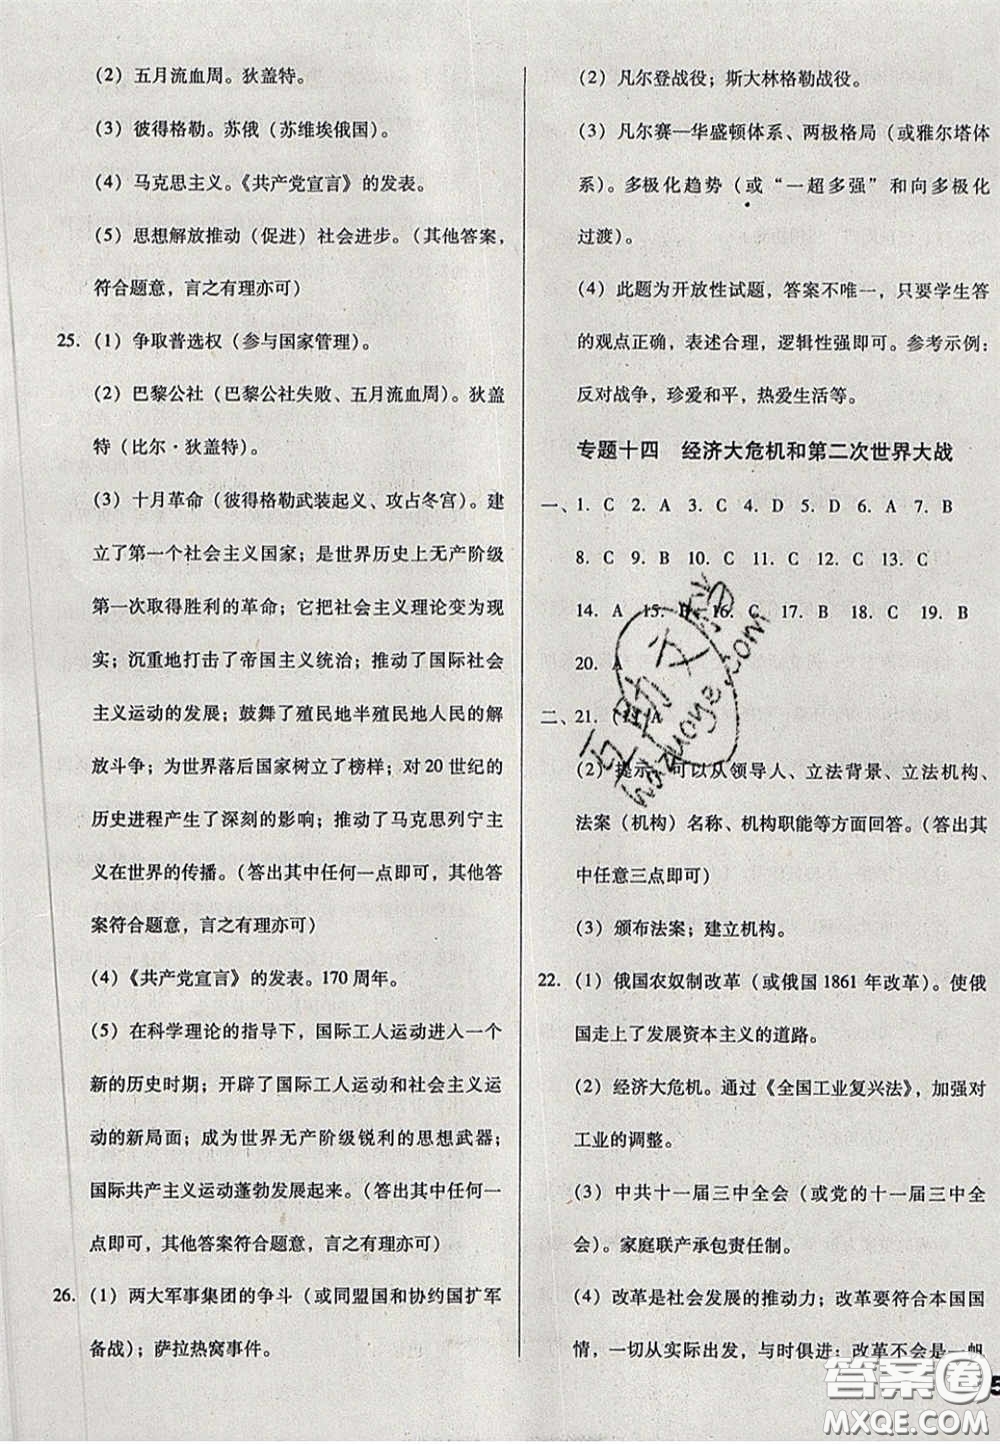 (2) 五月流血周。狄盖特。
(3) 彼得格勒。苏俄（苏维埃俄国）。
(4) 马克思主义。《共产党宣言》的发表。
(5) 思想解放推动（促进）社会进步。（其他答案，
符合题意，言之有理亦可）
25. (1) 争取普选权（参与国家管理）。
(2) 巴黎公社（巴黎公社失败、五月流血周）。狄盖
特（比尔·狄盖特）。
(3) 十月革命（彼得格勒武装起义、攻占冬宫）。建
立了第一个社会主义国家；是世界历史上无产阶级
第一次取得胜利的革命；它把社会主义理论变为现
实；沉重地打击了帝国主义统治；推动了国际社会
主义运动的发展；鼓舞了殖民地半殖民地人民的解
放斗争；为世界落后国家树立了榜样；对20世纪的
历史进程产生了深刻的影响；推动了马克思列宁主
义在世界的传播。（答出其中任何一点即可，其他答
案符合题意，言之有理亦可）
(4) 《共产党宣言》的发表。170周年。
(5) 在科学理论的指导下，国际工人运动进入一个
新的历史时期；开辟了国际工人运动和社会主义运
动的新局面；成为世界无产阶级锐利的思想武器；
国际共产主义运动蓬勃发展起来。（答出其中任何一
点即可，其他答案符合题意，言之有理亦可）
26. (1) 两大军事集团的争斗（或同盟国和协约国扩军
备战）；萨拉热窝事件。
(2) 凡尔登战役；斯大林格勒战役。
(3) 凡尔赛—华盛顿体系、两极格局（或雅尔塔体
系）。多极化趋势（或“一超多强”和向多极化
过渡）。
(4) 此题为开放性试题，答案不唯一，只要学生答
的观点正确，表述合理，逻辑性强即可。参考示例：
反对战争，珍爱和平，热爱生活等。
专题十四 经济大危机和第二次世界大战
一、1. C 2. A 3. C 4. D 5. D 6. A 7. B
8. C 9. B 10. C 11. C 12. C 13. C
14. A 15. D 16. C 17. B 18. C 19. B
20. A
二、21. (1) A
(2) 提示：可以从领导人、立法背景、立法机构、
法案（机构）名称、机构职能等方面回答。（答出其
中任意三点即可）
(3) 颁布法案；建立机构。
22. (1) 俄国农奴制改革（或俄国1861年改革）。使俄
国走上了发展资本主义的道路。
(2) 经济大危机。通过《全国工业复兴法》，加强对
工业的调整。
(3) 中共十一届三中全会（或党的十一届三中全
会）。家庭联产承包责任制。
(4) 改革是社会发展的推动力；改革要符合本国国
情，一切从实际出发，与时俱进；改革不会是一帆
互助文档
huzuoye.com
答案圈
MXQE.COM
5